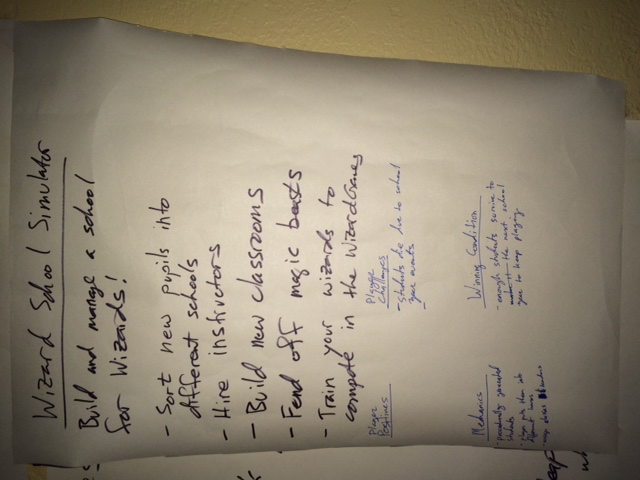 Wizard School Simulator
Build and manage a school
for Wizards!
- Sort new pupils into
different schools
- Hire instructors
- Build new classrooms
- Fend off magic beasts
- Train your wizards to
compete in the WizardGames
Player
Positives
Player
Challenges
- students die due to school
year events
Mechanics
- procedurally generated
students
different
Winning Condition
- enough students survive to
the next school
year to keep playing